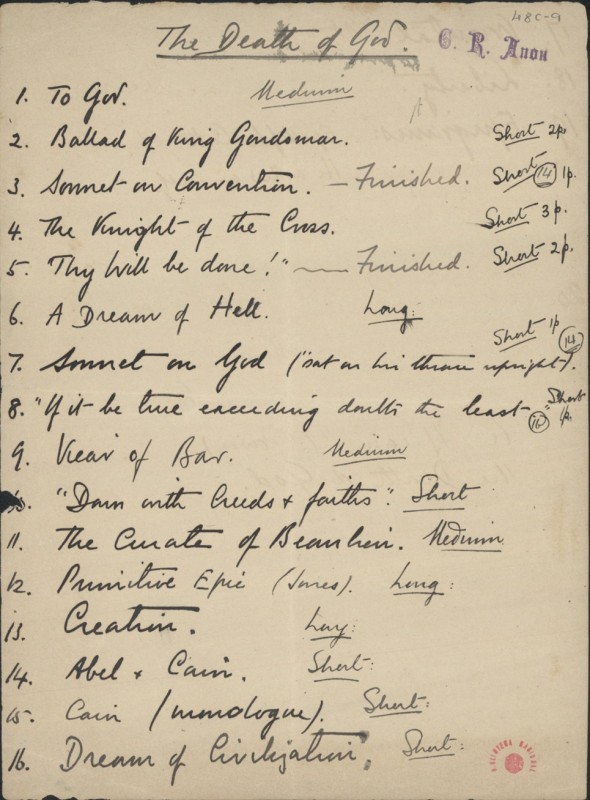 48C-9
The Death of God. C. R. Anon
1. To God. Medium
2. Ballad of King Gondsmar. Short 2p.
3. Sonnet on Convention. — Finished. Short 14 1p.
4. The Knight of the Cross. Short 3p.
5. "Thy Will be done!" — Finished. Short 2p.
6. A Dream of Hell. Long:
7. Sonnet on God ("sat on his throne upright"). Short 1p 14
8. "If it be true exceeding doubts the least" Short 1p.
9. Vicar of Bar. Medium
10. "Down with Creeds & faiths". Short
11. The Curate of Beaulieu. Medium
12. Primitive Epic (Jones). Long:
13. Creation. Long:
14. Abel & Cain. Short:
15. Cain (monologue). Short:
16. Dream of Civilization. Short:
BIBLIOTECA NACIONAL